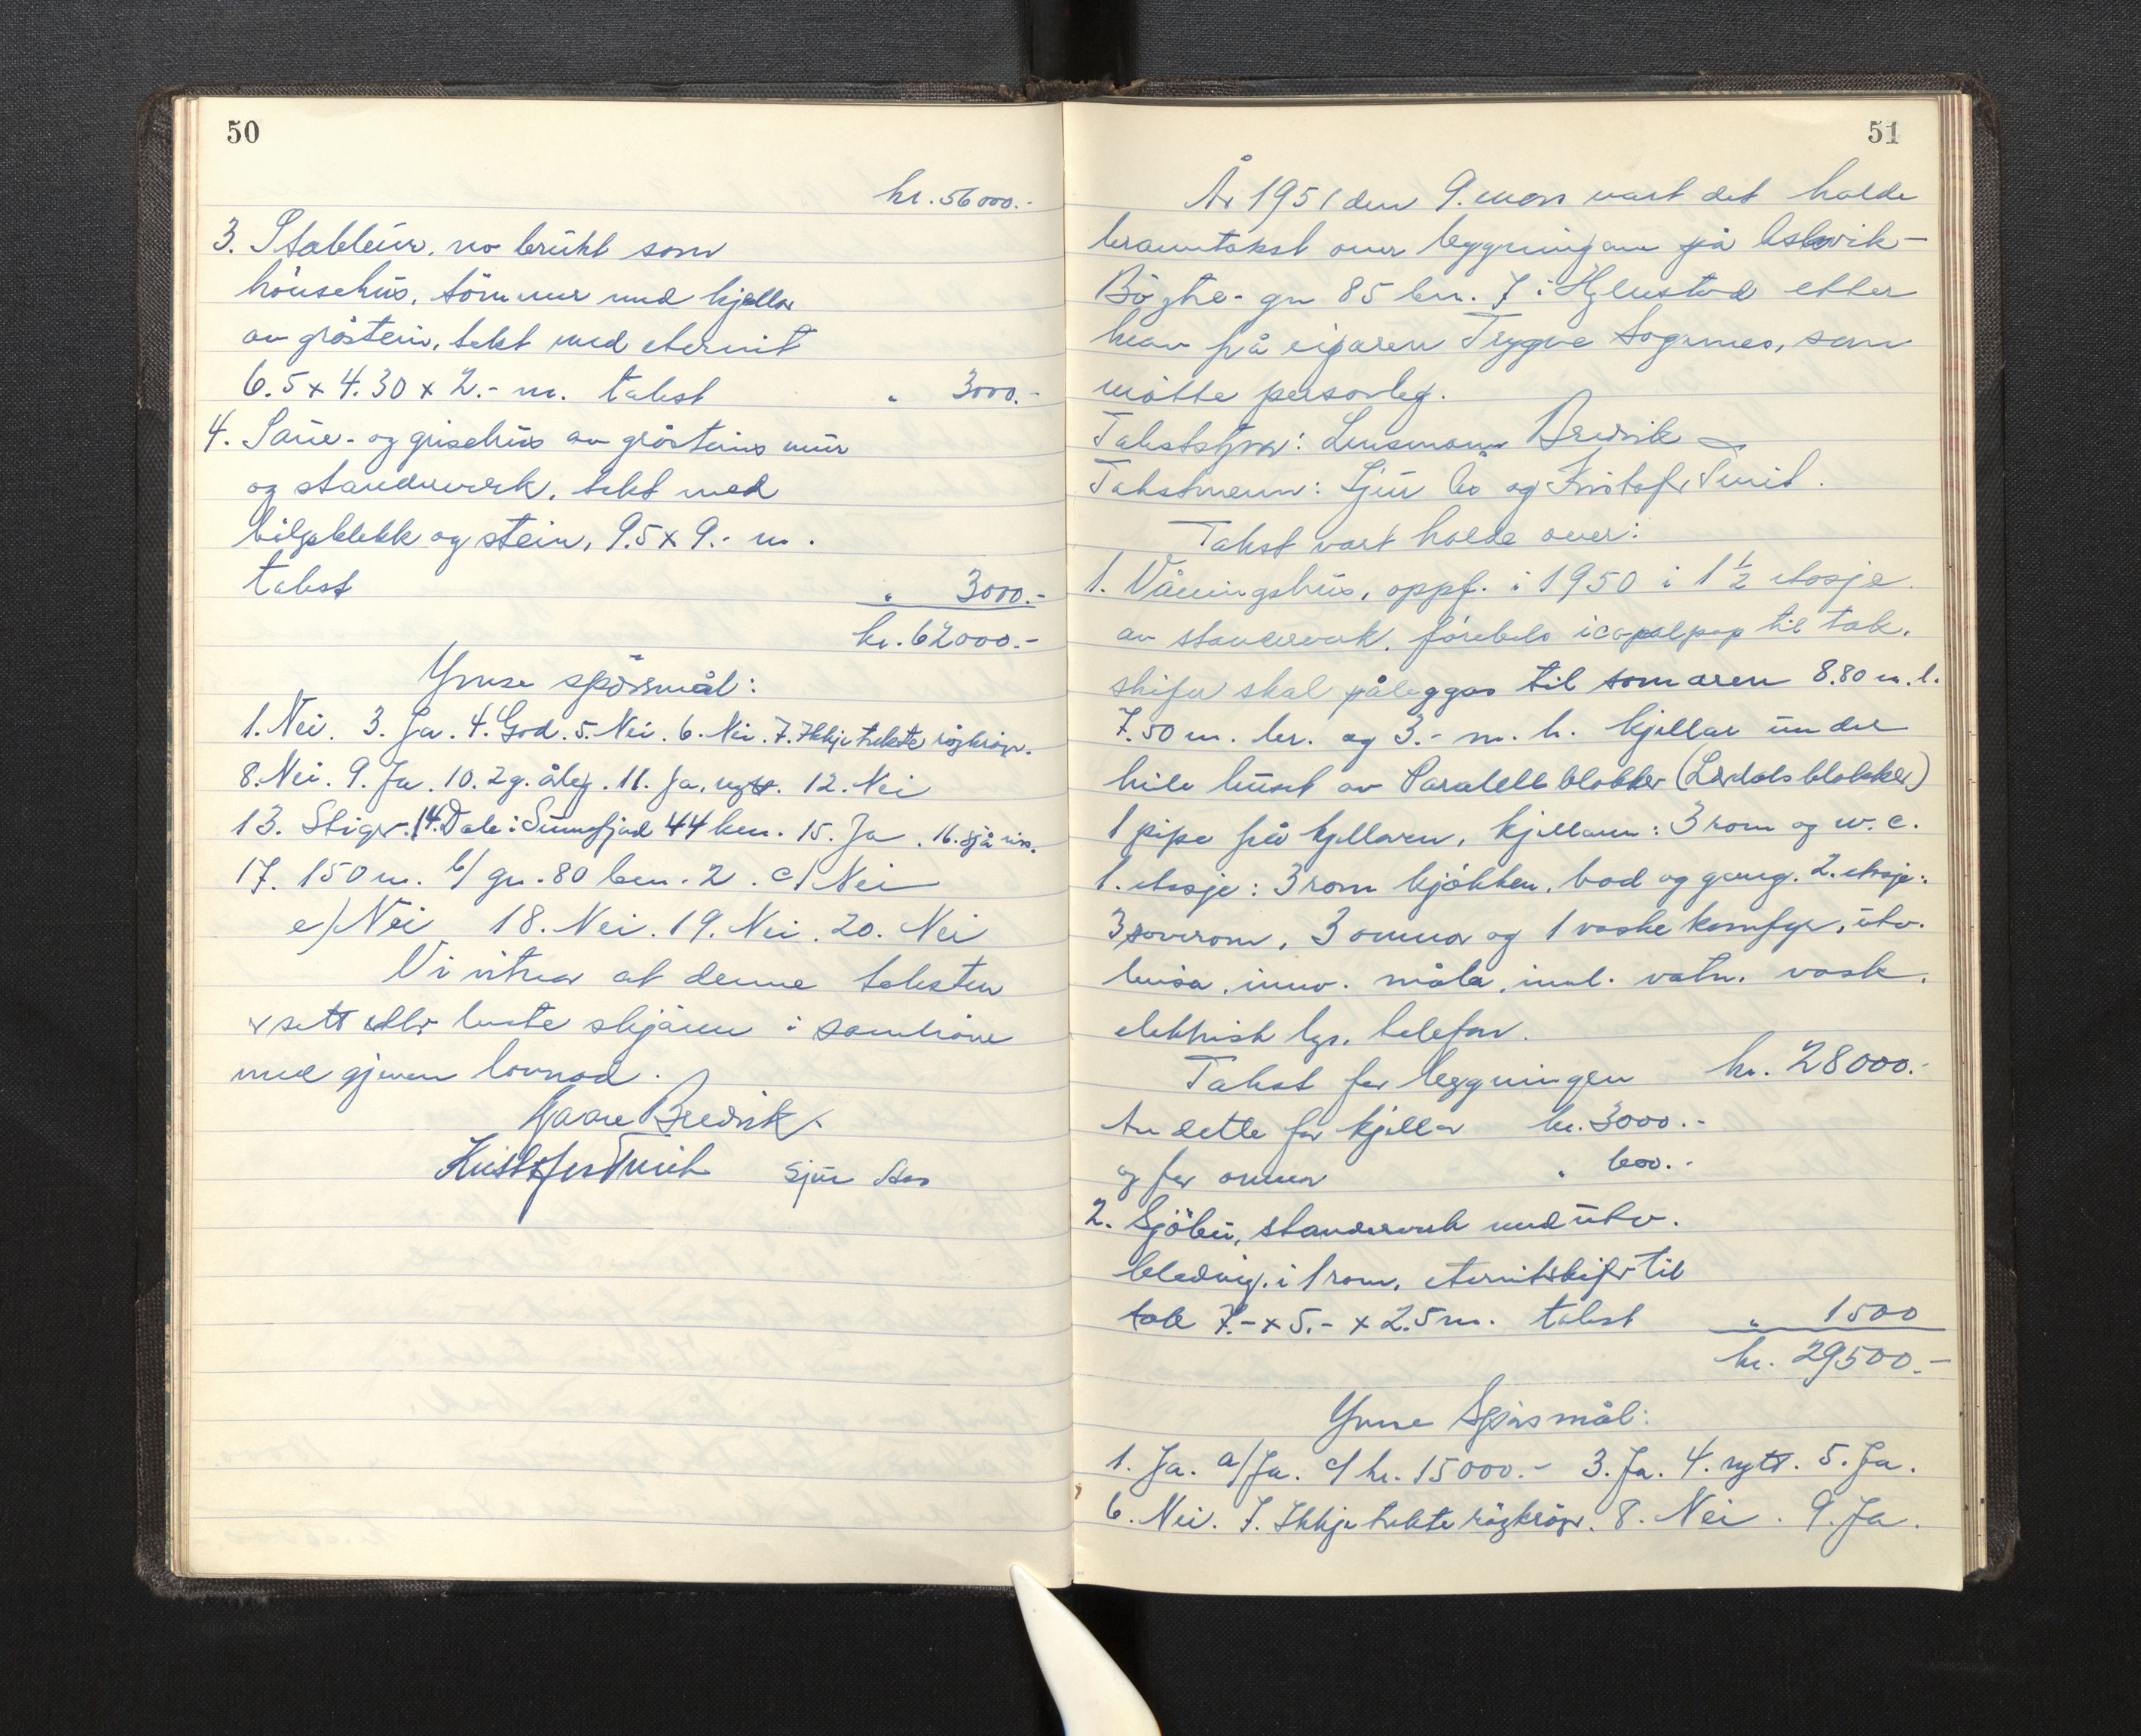 50
kr. 56000.-
3. Stabbur, no brukt som
hönsehus, tömmer med kjellar
av gråstein, tekt med eternit
6.5 x 4.30 x 2.- m. takst " 3000.-
4. Saue- og grisehus av gråsteins mur
og standerverk, tekt med
bölgeblekk og stein, 9.5 x 9.- m.
takst " 3000.-
kr. 62000.-
Ymse spörsmål:
1. Nei. 3. Ja. 4. God. 5. Nei. 6. Nei. 7. Ikkje trekte röykröyr.
8. Nei. 9. Ja. 10. 2 g. årleg. 11. Ja, nytt. 12. Nei
13. Stiger. 14. Dale i Sunnfjord 44 km. 15. Ja. 16. sjå riss.
17. 150 m. b/ gn. 80 bnr. 2. c/ Nei
e/ Nei 18. Nei. 19. Nei. 20. Nei
Vi vitnar at denne taksten
er sett etter beste skjönn i samhöve
med gjeven lovnad.
Gaare Bredvik
Kristofer Tveit Sjur Aas
51
År 1951 den 9. mars vart det halde
branntakst over bygningane på
gn 85 bnr. 7 i Hyllestad etter
krav frå eigaren Trygve Sognnes, som
mötte personleg.
Takststyrar: Lensmann Bredvik
Takstmenn: Sjur Ås og Kristofer Tveit.
Takst vart halde over:
1. Våningshus, oppf. i 1950 i 1 1/2 etasje
av standerverk, förebels icopalpap til tak.
skifer skal påleggas til somaren 8.80 m. l.
7.50 m. br. og 3.- m. h. kjellar under
heile huset av Paralellblokker (Lerdalsblokker)
1 pipe frå kjellaren, kjellaren: 3 rom og w.c.
1. etasje: 3 rom kjökken, bod og gang. 2. etasje:
3 soverom, 3 omnar og 1 vaske komfyr, utv.
beisa, innv. måla, innl. vatn, vask,
elektrisk lys, telefon.
Takst for bygningen kr. 28000.-
Av dette for kjellar kr. 3000.-
og for omnar " 600.-
2. Sjöbu, standerverk med utv.
kledning, i 1 rom, eternitskifer til
tak 7.- x 5.- x 2.5 m. takst " 1500
kr. 29500.-
Ymse Spörsmål:
1. Ja. a/ Ja. c/ kr. 15000.- 3. Ja. 4. nytt. 5. Ja.
6. Nei. 7. Ikkje trekte röykröyr. 8. Nei. 9. Ja.